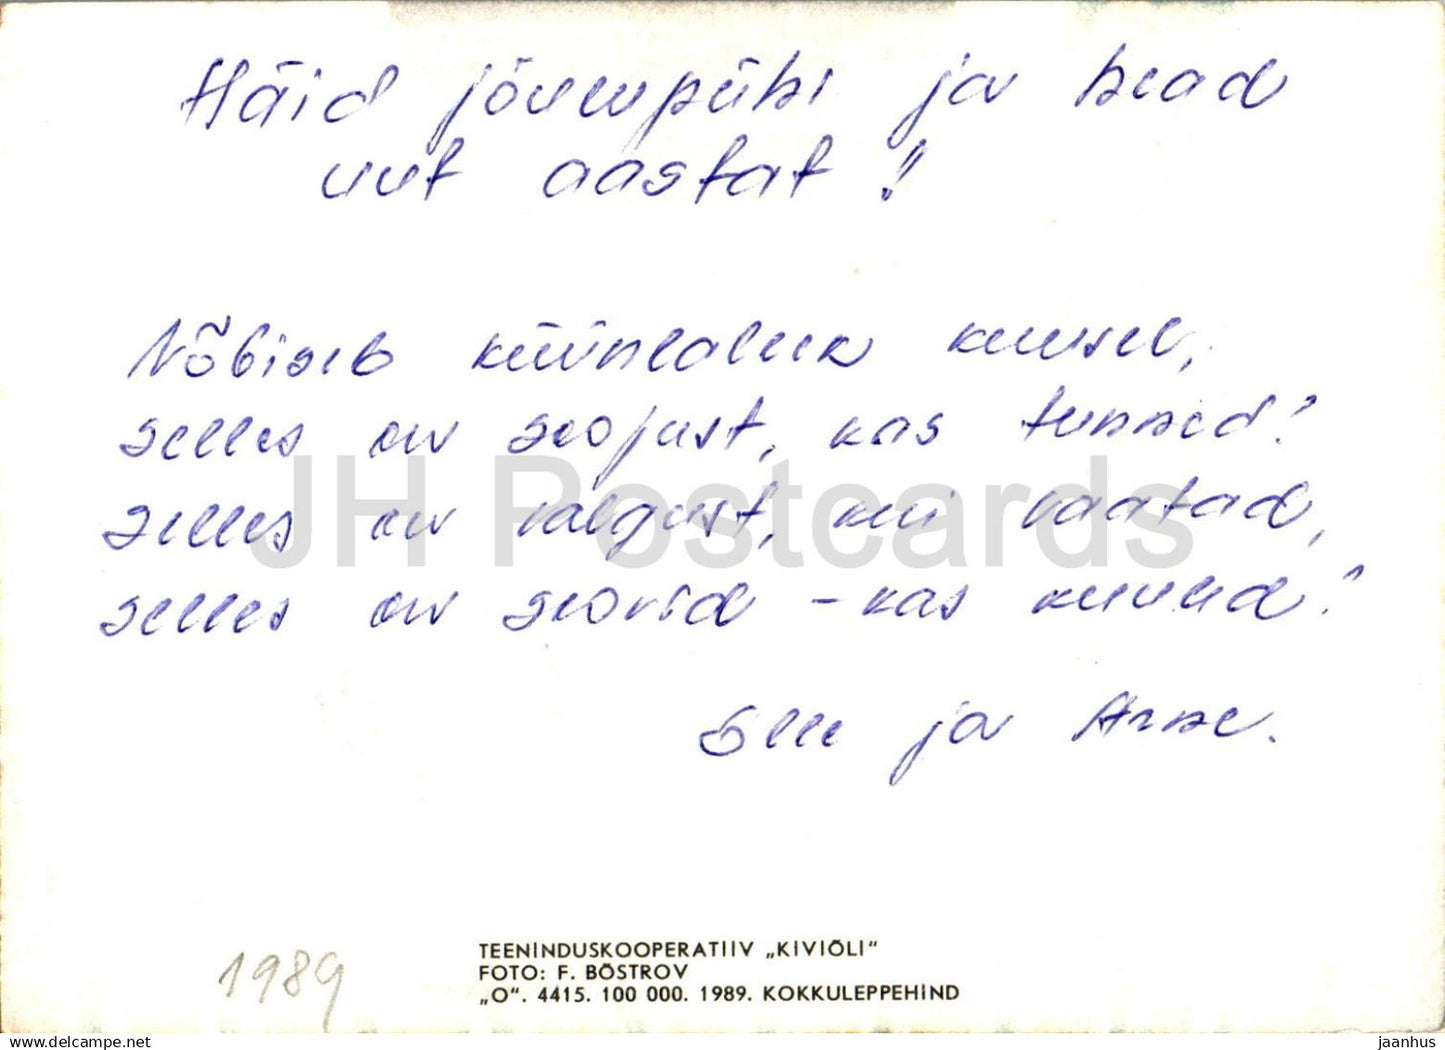 Häid jõulupühi ja head
uut aastat!
Võbiseb küünlaleek kuusel,
selles on soojust, kas tunned?
Selles on valgust, kui vaatad,
selles on soovid – kas kuuled?
Elle ja Arne.
JH Postcards
1989
TEENINDUSKOOPERATIIV „KIVIÕLI"
FOTO: F. BÕSTROV
„O". 4415. 100 000. 1989. KOKKULEPPEHIND
www.delcampe.net
jaanhus